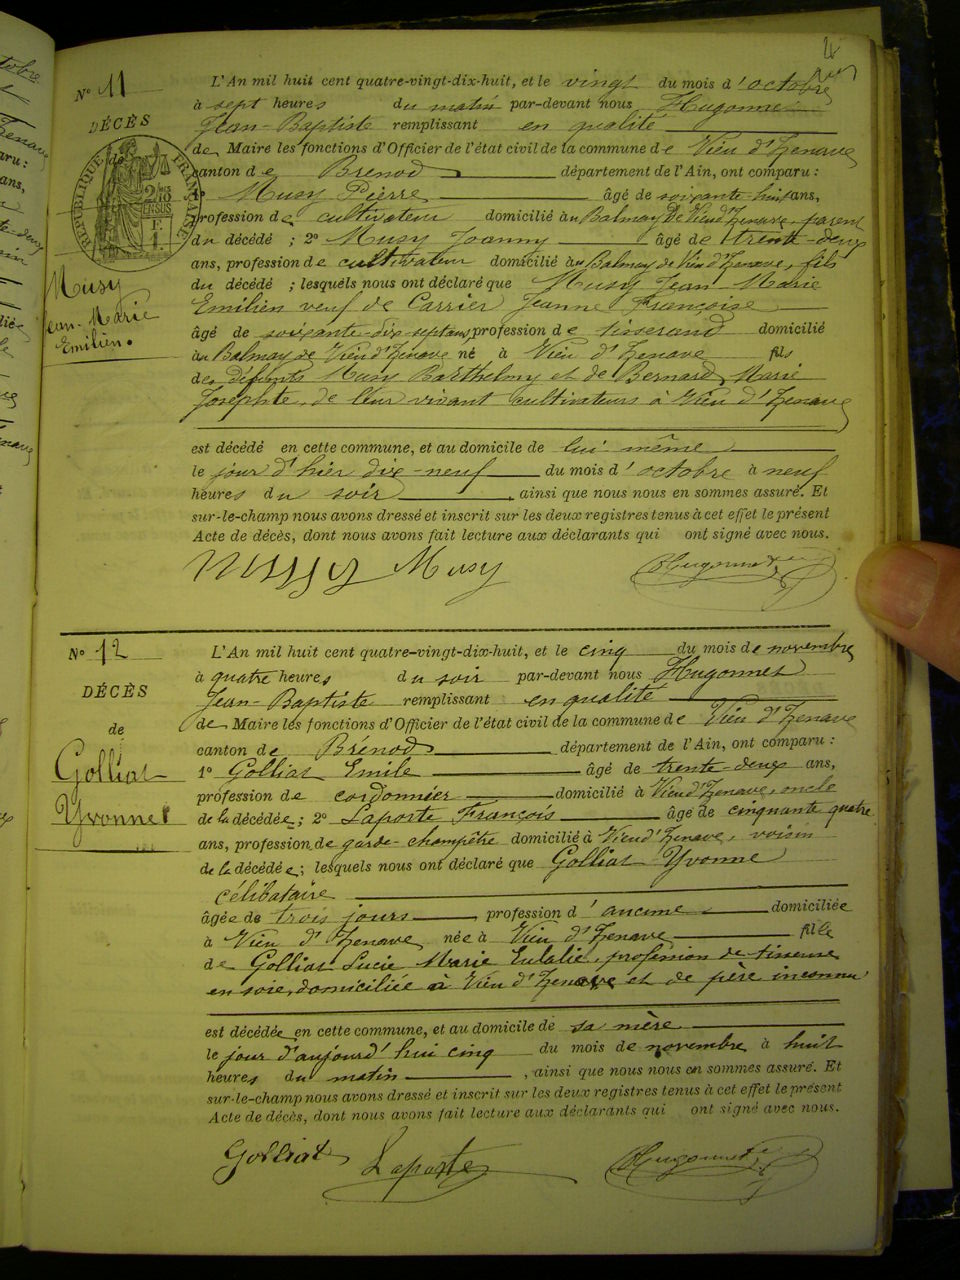 4
N° 11
DÉCÈS
de
RÉPUBLIQUE FRANÇAISE
2/10 EN SUS
F.
1.
Musy
Jean-Marie
Emilien.
L'An mil huit cent quatre-vingt-dix-huit, et le vingt du mois d'octobre
à sept heures du matin par-devant nous Hugonnet
Jean-Baptiste remplissant en qualité
de Maire les fonctions d'Officier de l'état civil de la commune de Vieu d'Izenave
canton de Brenod département de l'Ain, ont comparu :
1° Musy Pierre âgé de soixante-huit ans,
profession de cultivateur domicilié au Balmay de Vieu d'Izenave, parent
du décédé ; 2° Musy Joanny âgé de trente-deux
ans, profession de cultivateur domicilié au Balmay de Vieu d'Izenave, fils
du décédé ; lesquels nous ont déclaré que Musy Jean Marie
Emilien veuf de Carrier Jeanne Françoise
âgé de soixante-dix-sept ans, profession de tisserand domicilié
au Balmay de Vieu d'Izenave né à Vieu d'Izenave fils
des défunts Musy Barthelmy et de Bernard Marie
Josephte, de leur vivant cultivateurs à Vieu d'Izenave
est décédé en cette commune, et au domicile de lui même
le jour d'hier dix-neuf du mois d'octobre à neuf
heures du soir, ainsi que nous nous en sommes assuré. Et
sur-le-champ nous avons dressé et inscrit sur les deux registres tenus à cet effet le présent
Acte de décès, dont nous avons fait lecture aux déclarants qui ont signé avec nous.
Musy Musy Hugonnet
N° 12
DÉCÈS
de
Golliat
Yvonne
L'An mil huit cent quatre-vingt-dix-huit, et le cinq du mois de novembre
à quatre heures du soir par-devant nous Hugonnet
Jean-Baptiste remplissant en qualité
de Maire les fonctions d'Officier de l'état civil de la commune de Vieu d'Izenave
canton de Brénod département de l'Ain, ont comparu :
1° Golliat Emile âgé de trente-deux ans,
profession de cordonnier domicilié à Vieu d'Izenave, oncle
de la décédée ; 2° Laporte François âgé de cinquante quatre
ans, profession de garde-champêtre domicilié à Vieu d'Izenave, voisin
de la décédée ; lesquels nous ont déclaré que Golliat Yvonne
célibataire
âgée de trois jours, profession d'aucune domiciliée
à Vieu d'Izenave née à Vieu d'Izenave fille
de Golliat Lucie Marie Eulalie, profession de tisseuse
en soie, domiciliée à Vieu d'Izenave et de père inconnu
est décédée en cette commune, et au domicile de sa mère
le jour d'aujourd'hui cinq du mois de novembre à huit
heures du matin, ainsi que nous nous en sommes assuré. Et
sur-le-champ nous avons dressé et inscrit sur les deux registres tenus à cet effet le présent
Acte de décès, dont nous avons fait lecture aux déclarants qui ont signé avec nous.
Golliat Laporte Hugonnet